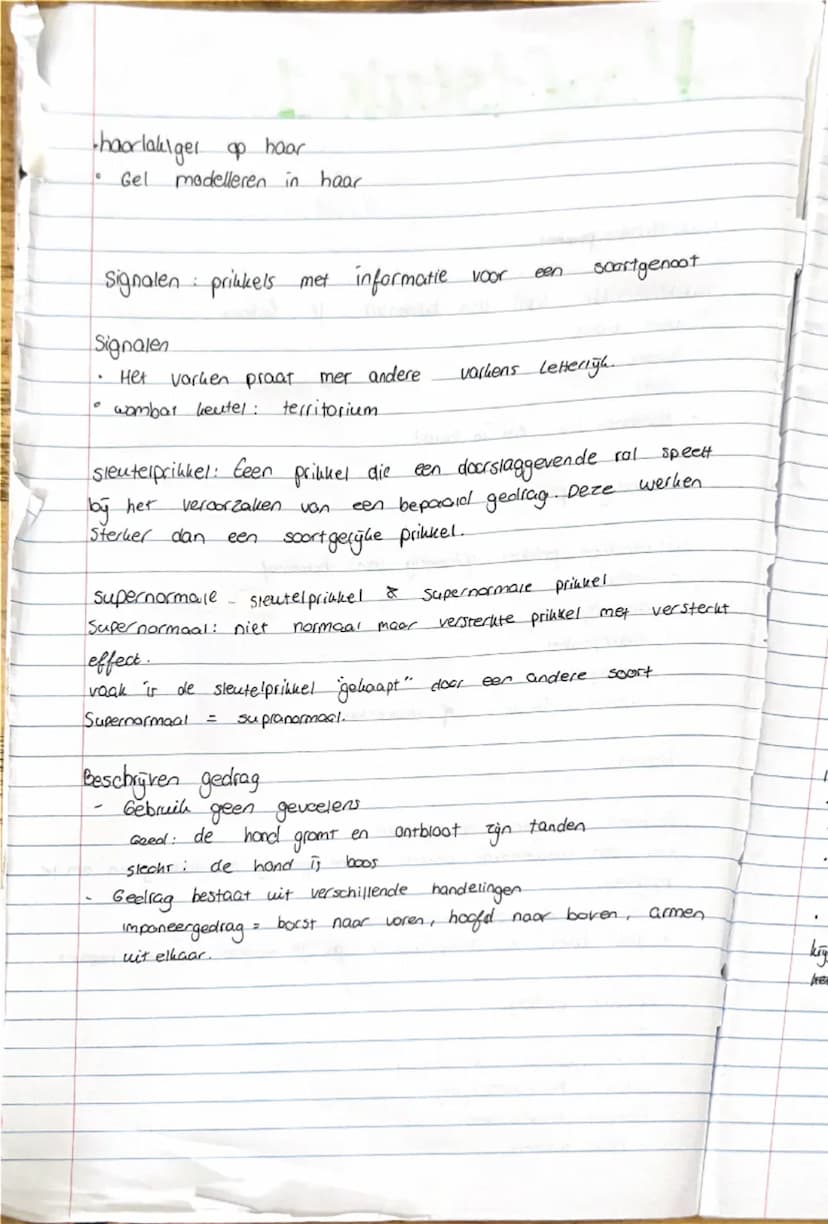 • haarlak/ger op haar
• Gel modelleren in haar
Signalen : prikkels met informatie voor een soortgenoot
Signalen
• Het varken praat met andere varkens letterlijk.
• wombat keutel : territorium
sleutelprikkel: Eeen prikkel die een doorslaggevende rol speelt
bij het veroorzaken van een bepaald gedrag. Deze werken
sterker dan een soortgerijke prikkel.
supernormale - sleutelprikkel & supernormale prikkel
Supernormaal: niet normaal maar versterkte prikkel met versterkt
effect.
vaak is de sleutelprikkel "gekaapt" door een andere soort
Supernormaal = supranormaal.
Beschrijven gedrag
- Gebruik geen gevoelens
Goed: de hond gromt en ontbloot zijn tanden
slecht: de hond is boos
- Gedrag bestaat uit verschillende handelingen
imponeergedrag = borst naar voren, hoofd naar boven, armen
uit elkaar.